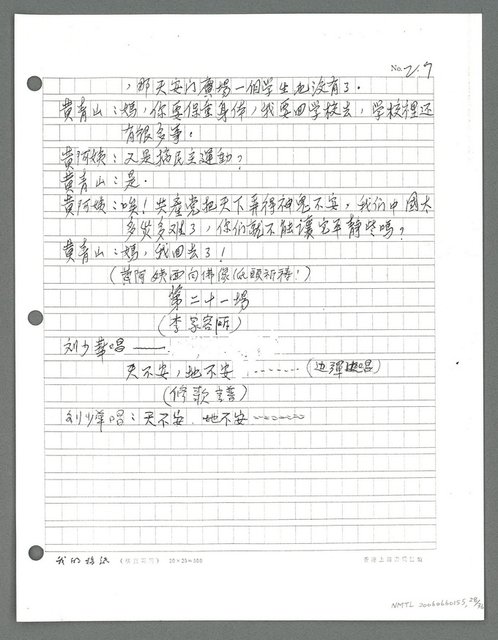 No. 27
，那天安门廣場一個学生也没有了．
黄青山：媽，你要保重身体，我要回学校去，学校裡还
有很多事。
黄阿姨：又是搞民主運動？
黄青山：是．
黄阿姨：唉！共產党把天下弄得神鬼不安，我们中國太
多災多难了，你们就不能讓它平静些嗎？
黄青山：媽，我回去了！
（黄阿姨面向佛像低頭祈禱！）
第二十一場
（李家客厛）
刘少華唱——
天不安，地不安 ……（边彈边唱）
（修歌譜）
刘少華唱：天不安．地不安……
我的 20×25=500
NMTL 20060660155